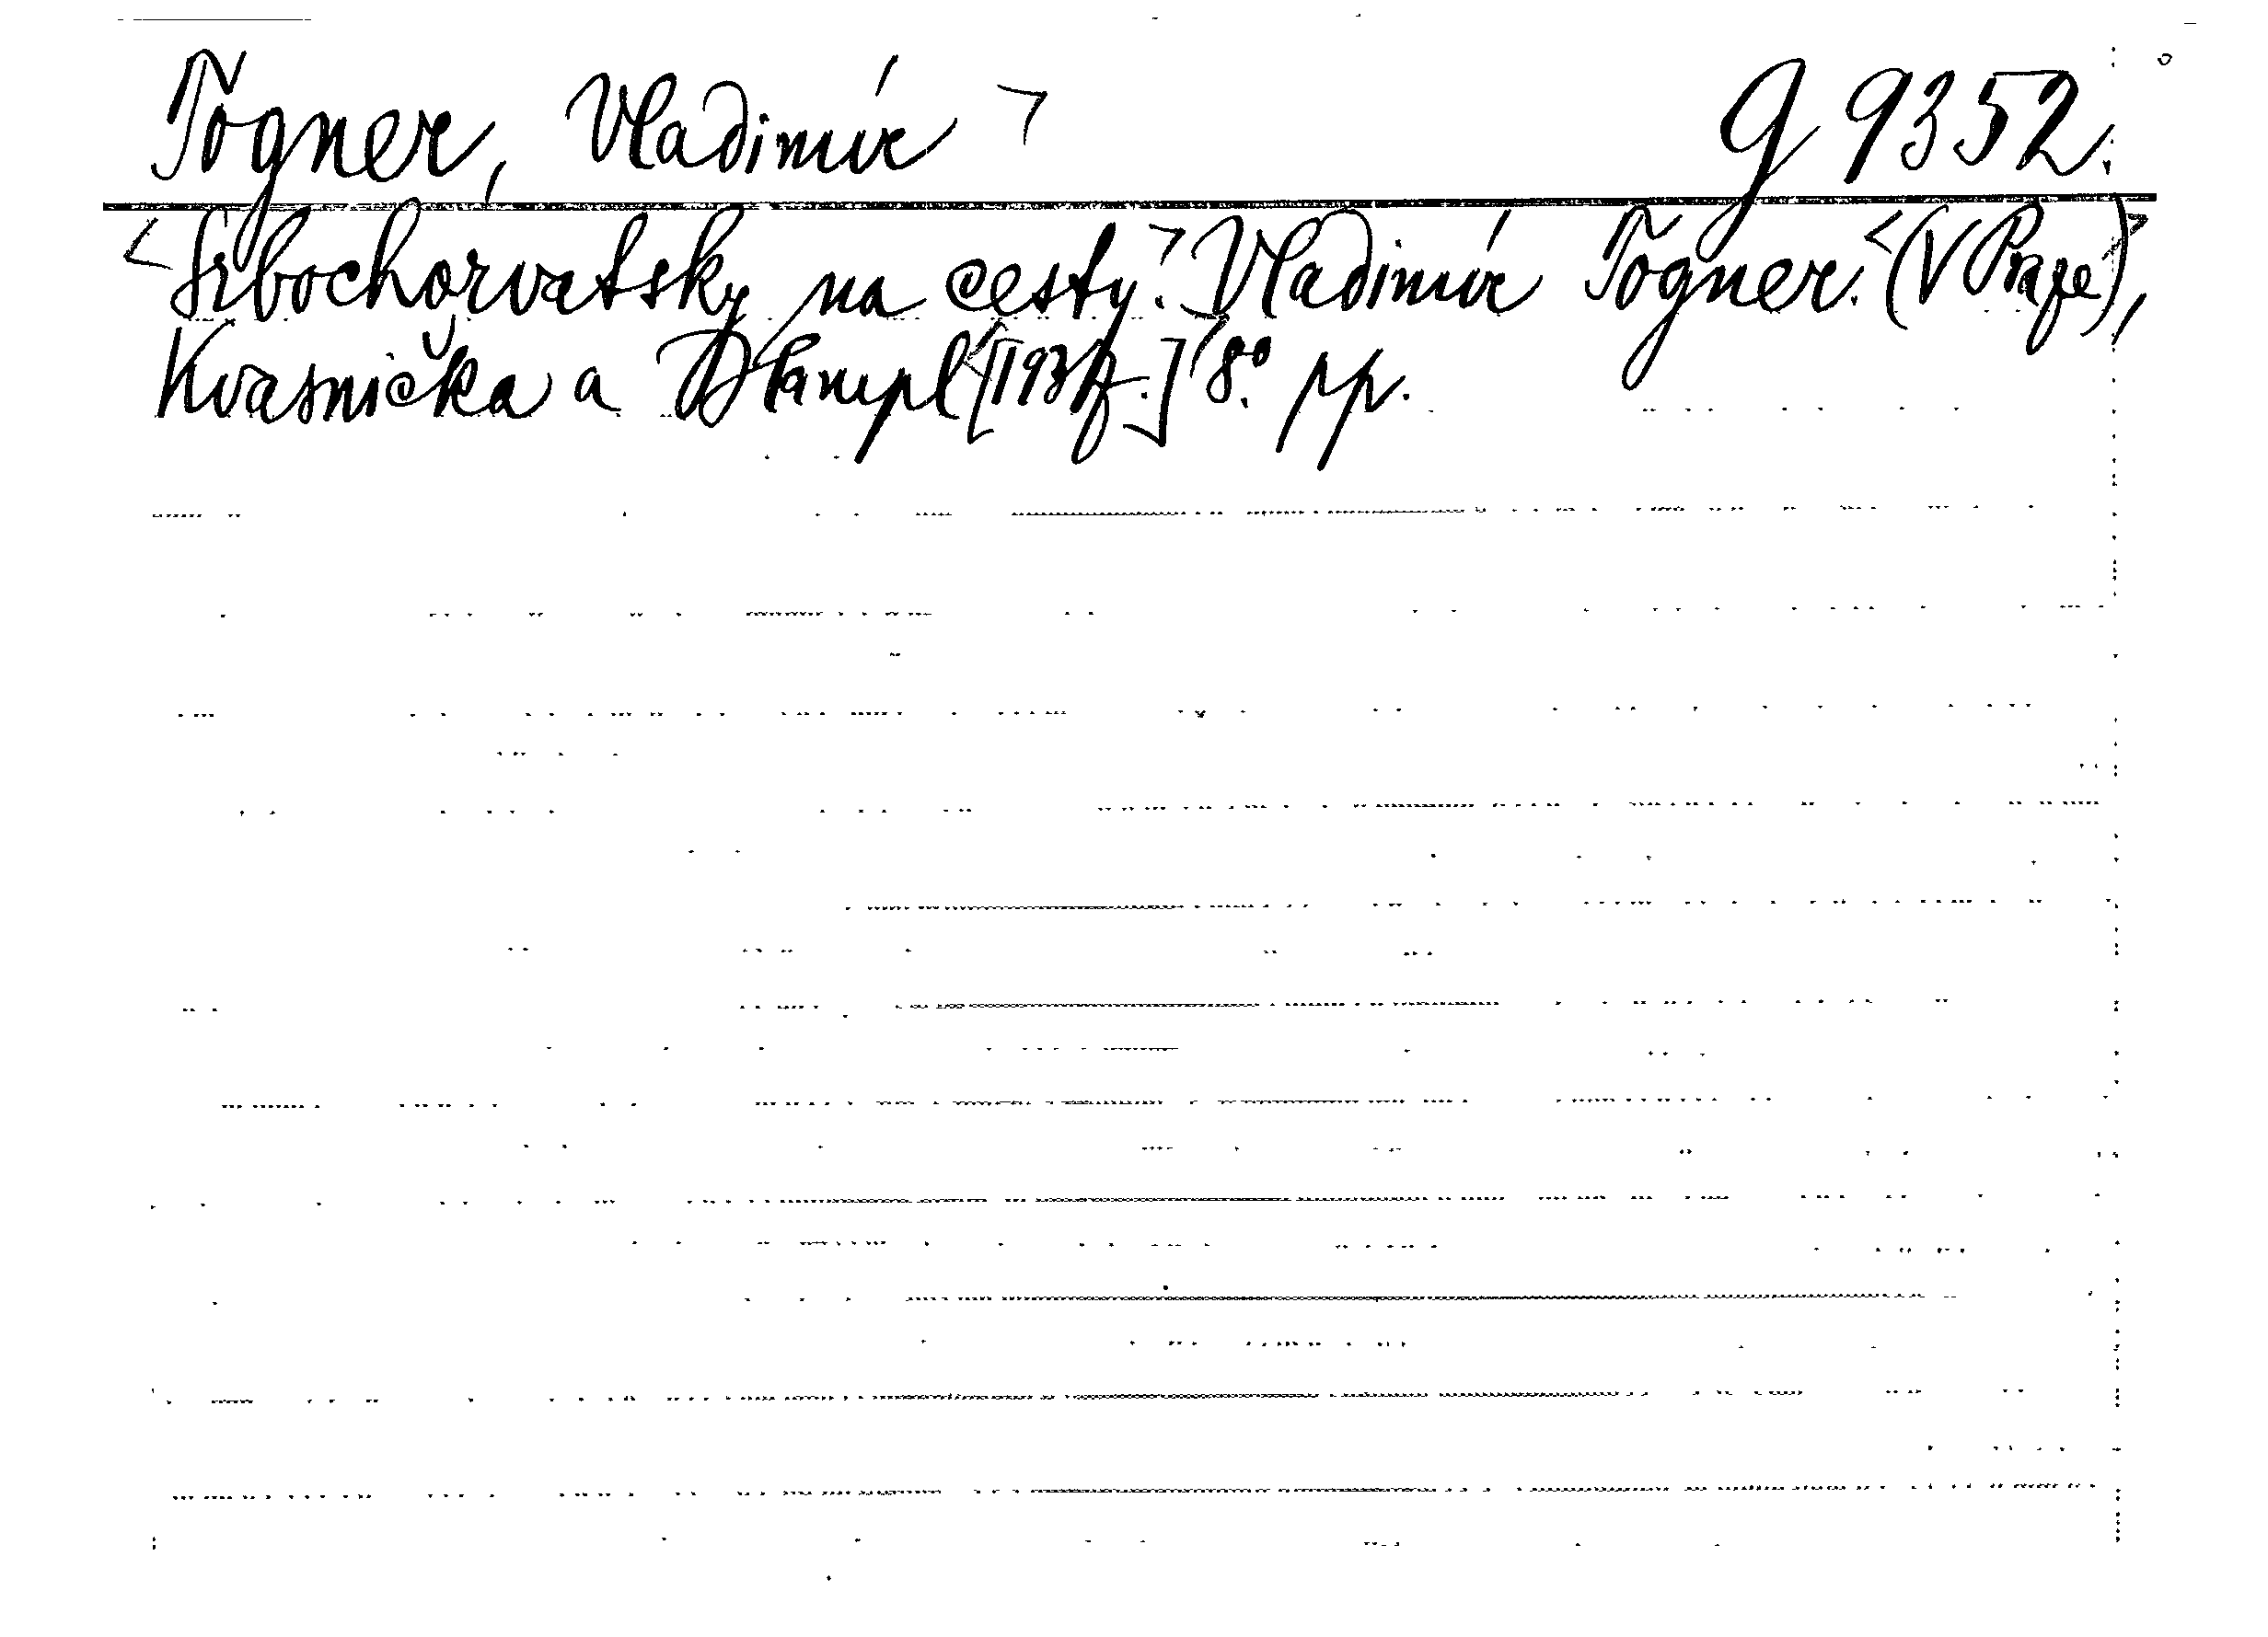 Togner, Vladimír > G 9352.
< Srbochorvatsky na cesty. > Vladimír Togner. < (V Praze) >,
Kvasnička a Hampl [193 .] 8.° pp.